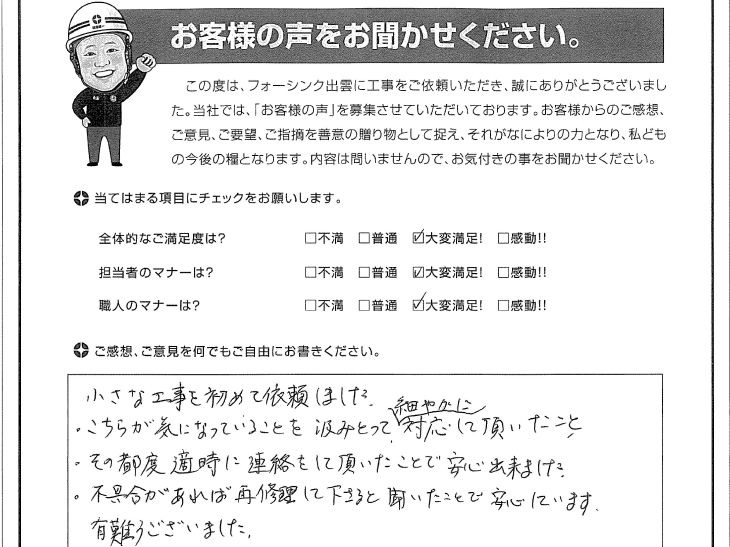 お客様の声をお聞かせください。
この度は、フォーシンク出雲に工事をご依頼いただき、誠にありがとうございまし
た。当社では、「お客様の声」を募集させていただいております。お客様からのご感想、
ご意見、ご要望、ご指摘を善意の贈り物として捉え、それがなによりの力となり、私ども
の今後の糧となります。内容は問いませんので、お気付きの事をお聞かせください。
当てはまる項目にチェックをお願いします。
全体的なご満足度は? □不満 □普通 ☑大変満足! □感動!!
担当者のマナーは? □不満 □普通 ☑大変満足! □感動!!
職人のマナーは? □不満 □普通 ☑大変満足! □感動!!
ご感想、ご意見を何でもご自由にお書きください。
小さな工事を初めて依頼しました。
・こちらが気になっていることを汲みとって細やかに対応して頂いたこと
・その都度適時に連絡をして頂いたことで安心出来ました。
・不具合があれば再修理して下さると聞いたことで安心しています。
有難うございました。